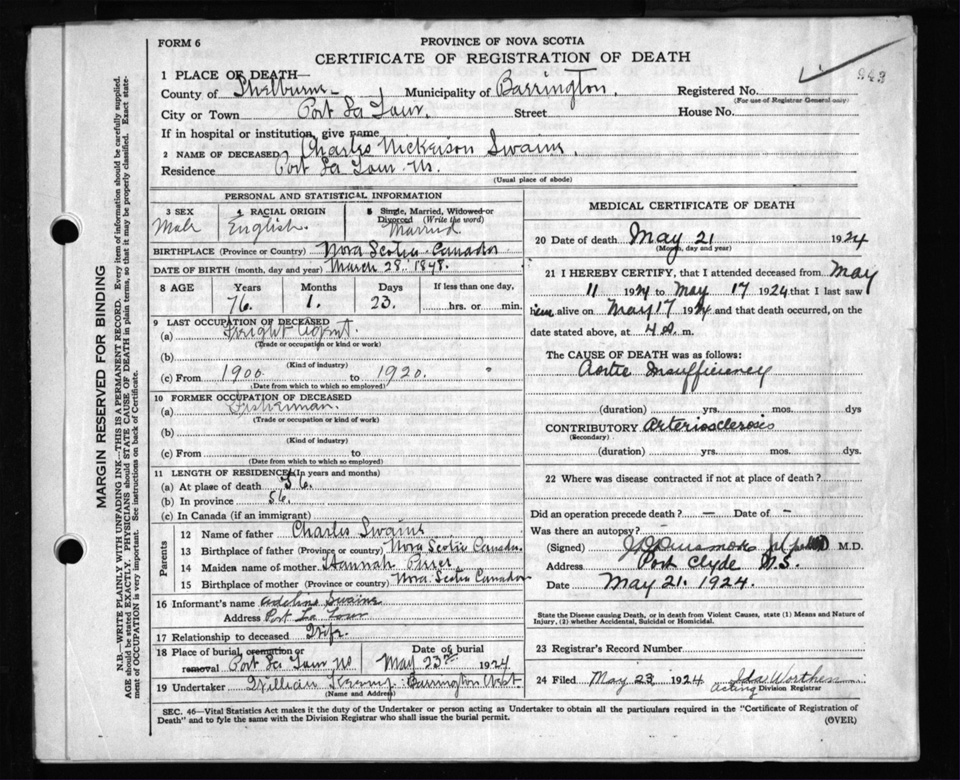 FORM 6
PROVINCE OF NOVA SCOTIA
CERTIFICATE OF REGISTRATION OF DEATH
943
1 PLACE OF DEATH—
County of Shelburne Municipality of Barrington. Registered No.
(For use of Registrar General only)
City or Town Port La Tour. Street House No.
If in hospital or institution, give name
2 NAME OF DECEASED Charles Nickerson Swaine.
Residence Port La Tour. NS.
(Usual place of abode)
PERSONAL AND STATISTICAL INFORMATION
3 SEX Male
4 RACIAL ORIGIN English.
5 Single, Married, Widowed or Divorced (Write the word) Married
BIRTHPLACE (Province or Country) Nova Scotia Canada
DATE OF BIRTH (month, day and year) March 28. 1848.
8 AGE Years 76. Months 1. Days 23. If less than one day, hrs. or min.
9 LAST OCCUPATION OF DECEASED
(a) Freight Agent.
(Trade or occupation or kind or work)
(b)
(Kind of industry)
(c) From 1900 to 1920.
(Date from which to which so employed)
10 FORMER OCCUPATION OF DECEASED
(a) Fisherman.
(Trade or occupation or kind of work)
(b)
(Kind of industry)
(c) From to
(Date from which to which so employed)
11 LENGTH OF RESIDENCE (In years and months)
(a) At place of death 56.
(b) In province 56.
(c) In Canada (if an immigrant)
Parents
12 Name of father Charles Swaine
13 Birthplace of father (Province or country) Nova Scotia Canada.
14 Maiden name of mother. Hannah
15 Birthplace of mother (Province or country) Nova Scotia Canada
16 Informant's name Adeline Swaine
Address Port La Tour
17 Relationship to deceased Wife.
18 Place of burial, cremation or removal Port La Tour NS
Date of burial May 23rd 1924
19 Undertaker William Barrington West
(Name and Address)
MEDICAL CERTIFICATE OF DEATH
20 Date of death May 21 1924
(Month, day and year)
21 I HEREBY CERTIFY, that I attended deceased from May
11 1924 to May 17 1924 that I last saw
him alive on May 17 1924 and that death occurred, on the
date stated above, at 4 a. m.
The CAUSE OF DEATH was as follows:
Aortic Insufficiency
(duration) yrs. mos. dys
CONTRIBUTORY Arteriosclerosis
(Secondary)
(duration) yrs. mos. dys.
22 Where was disease contracted if not at place of death?
Did an operation precede death? — Date of —
Was there an autopsy? -
(Signed) M.D.
Address Port Clyde N.S.
Date May 21. 1924.
State the Disease causing Death, or in death from Violent Causes, state (1) Means and Nature of
Injury, (2) whether Accidental, Suicidal or Homicidal.
23 Registrar's Record Number
24 Filed May 23 1924 Ida Worthen
Acting Division Registrar
SEC. 46—Vital Statistics Act makes it the duty of the Undertaker or person acting as Undertaker to obtain all the particulars required in the "Certificate of Registration of
Death" and to fyle the same with the Division Registrar who shall issue the burial permit.
(OVER)
MARGIN RESERVED FOR BINDING
N.B.—WRITE PLAINLY WITH UNFADING INK—THIS IS A PERMANENT RECORD. Every item of information should be carefully supplied.
AGE should be stated EXACTLY. PHYSICIANS should STATE CAUSE OF DEATH in plain terms, so that it may be properly classified. Exact state-
ment of OCCUPATION is very important. See instructions on back of Certificate.